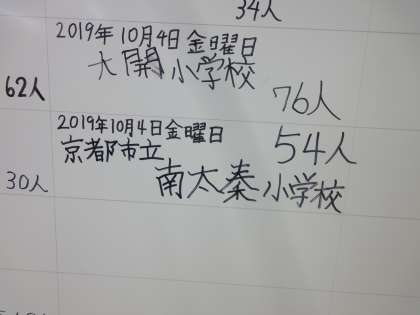 34人
2019年 10月4日 金曜日
大開小学校
62人
76人
2019年10月4日金曜日
京都市立
54人
南太秦小学校
30人